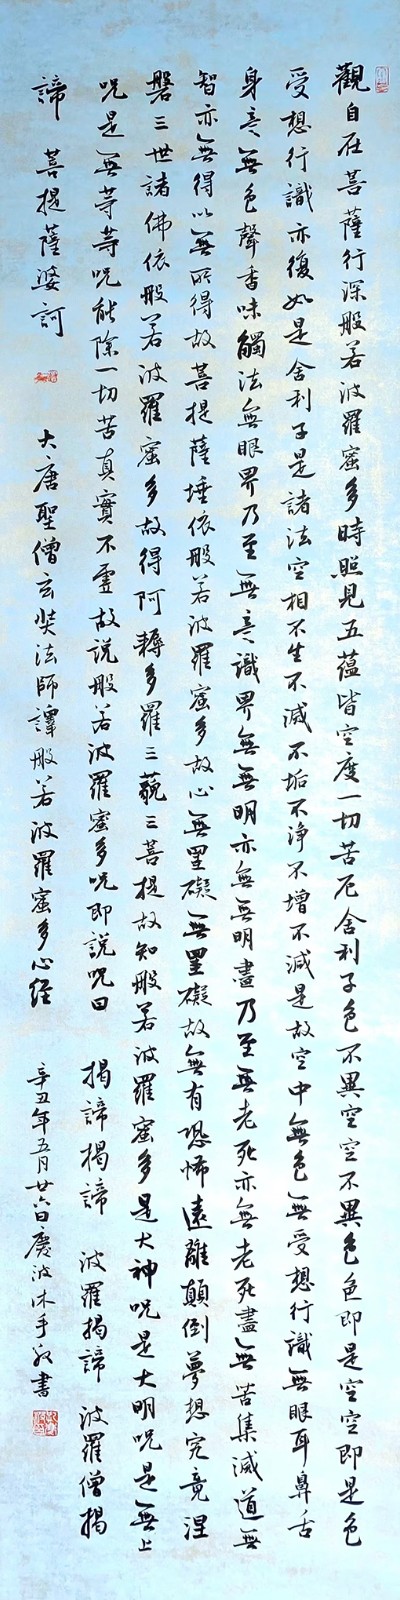 觀自在菩薩行深般若波羅蜜多時照見五蘊皆空度一切苦厄舍利子色不異空空不異色色即是空空即是色
受想行識亦復如是舍利子是諸法空相不生不滅不垢不净不增不減是故空中無色無受想行識無眼耳鼻舌
身意無色聲香味觸法無眼界乃至無意識界無無明亦無無明盡乃至無老死亦無老死盡無苦集滅道無
智亦無得以無所得故菩提薩埵依般若波羅蜜多故心無罣礙無罣礙故無有恐怖遠離顛倒夢想究竟涅
磐三世諸佛依般若波羅蜜多故得阿耨多羅三藐三菩提故知般若波羅蜜多是大神呪是大明呪是無上
呪是無等等呪能除一切苦真實不虛故說般若波羅蜜多呪即說呪曰 揭諦揭諦 波羅揭諦 波羅僧揭
諦 菩提薩婆訶 大唐聖僧玄奘法師譯般若波羅蜜多心經 辛丑年五月廿六日慶波沐手敬書